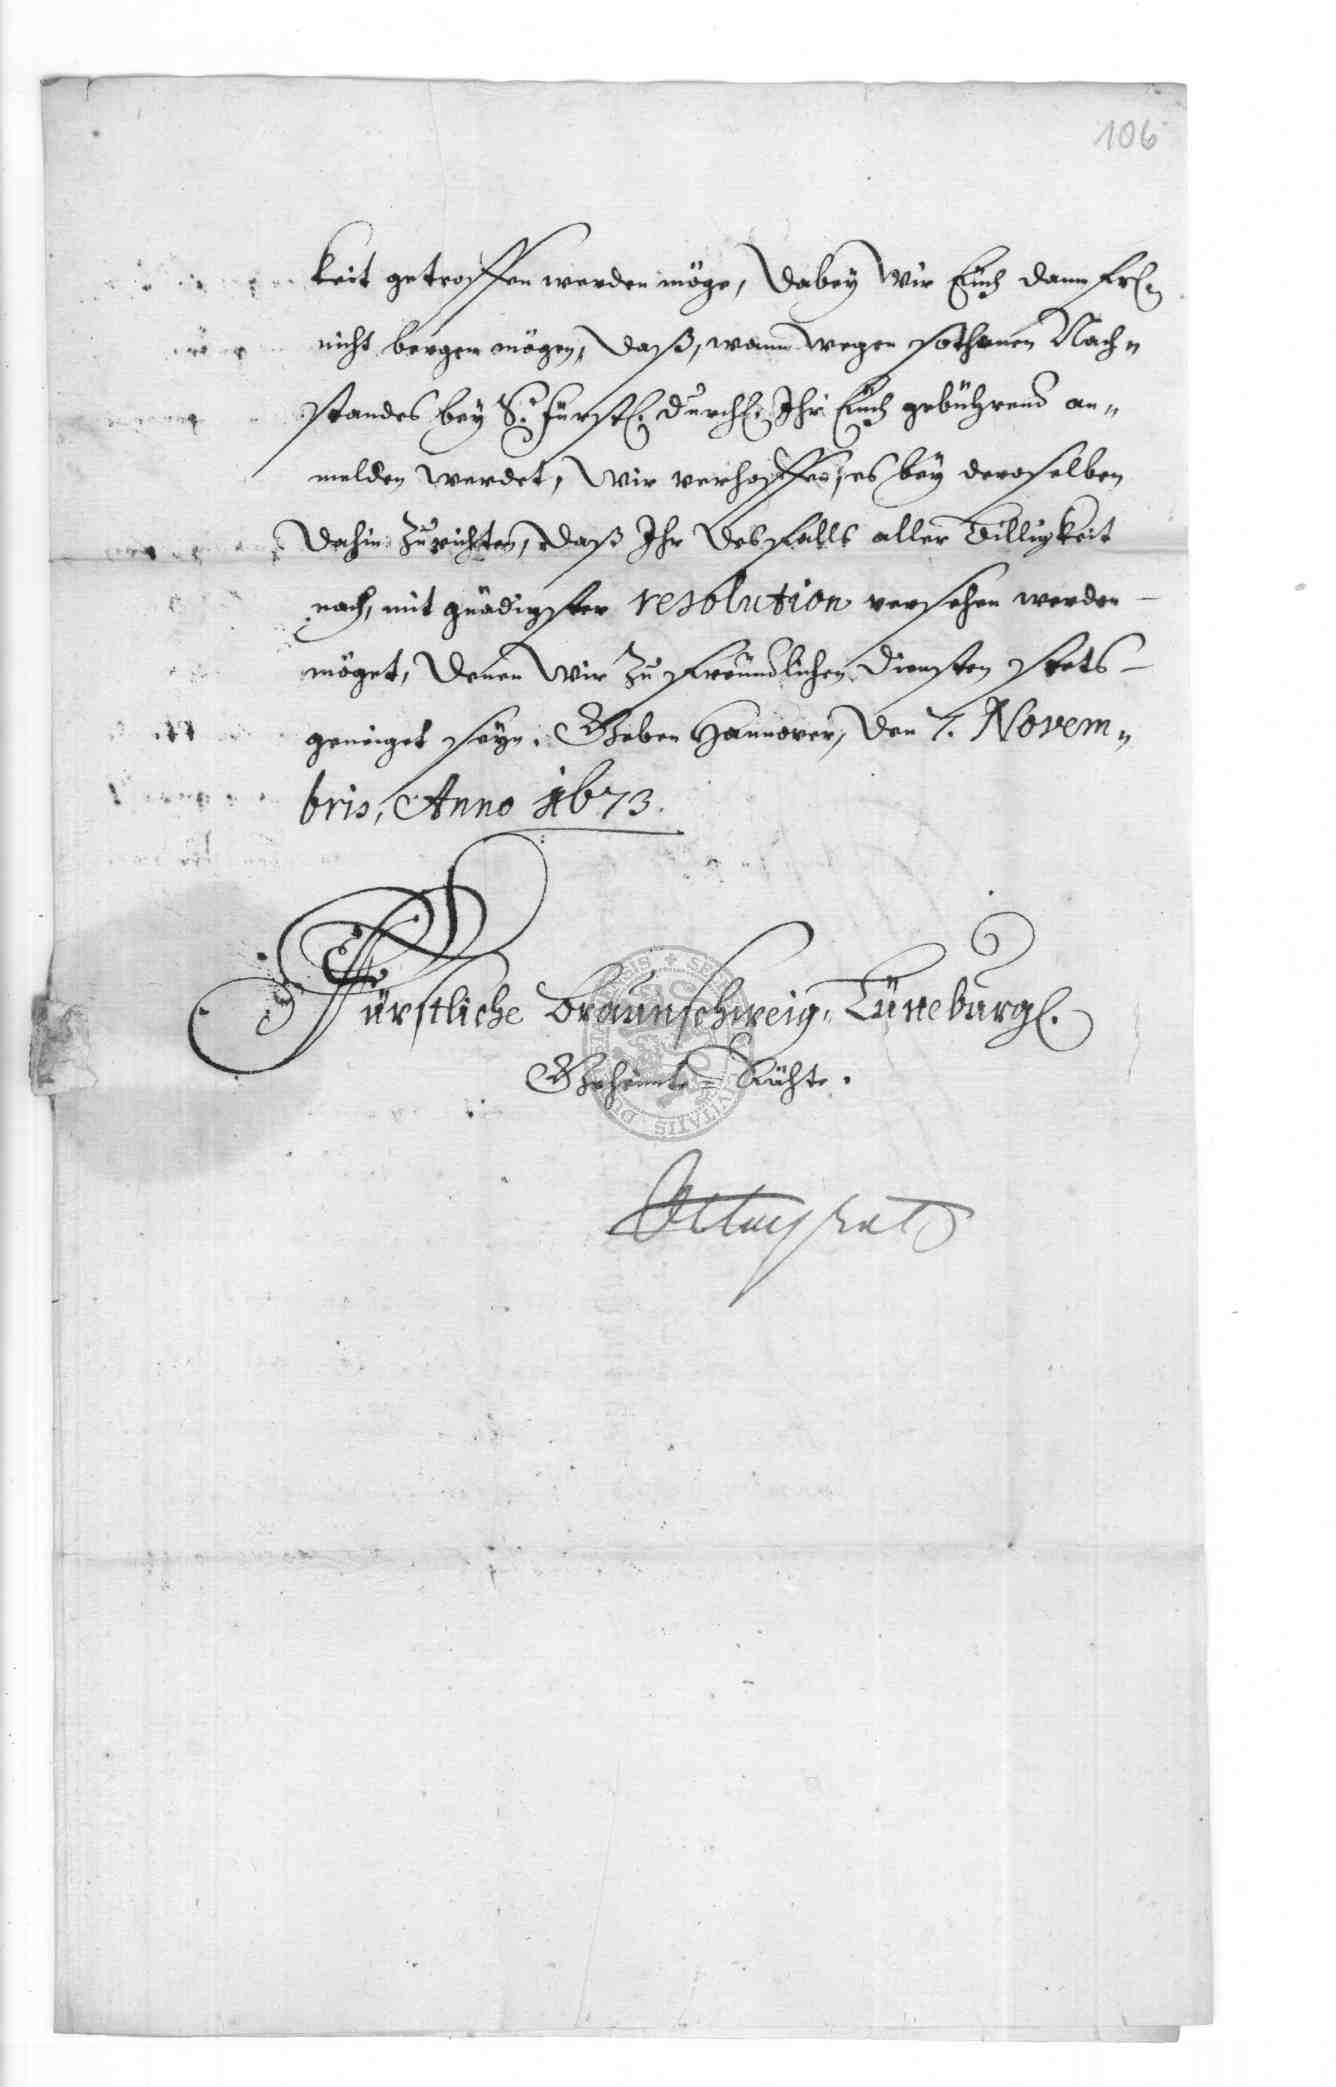 106
keit getroffen werden möge, Dabey Wir Euch dann frl.
nicht bergen mögen, Daß, wann wegen sothanen Nach„
standes bey Sr. Fürstl. Durchl. Ihr Euch gebührend an„
melden werdet, Wir verhoffen, es bey deroselben
Dahin Zurichten, Daß Ihr Desfalls aller Billigkeit
nach, mit gnädigster resolution versehen werden
möget, Denen Wir Zu freundlichen Diensten stets
geneiget seyn. Geben Hannover, Den 7. Novem„
bris, Anno 1673.
Fürstliche Braunschweig. Lüneburgl.
Geheimte=Rähte.